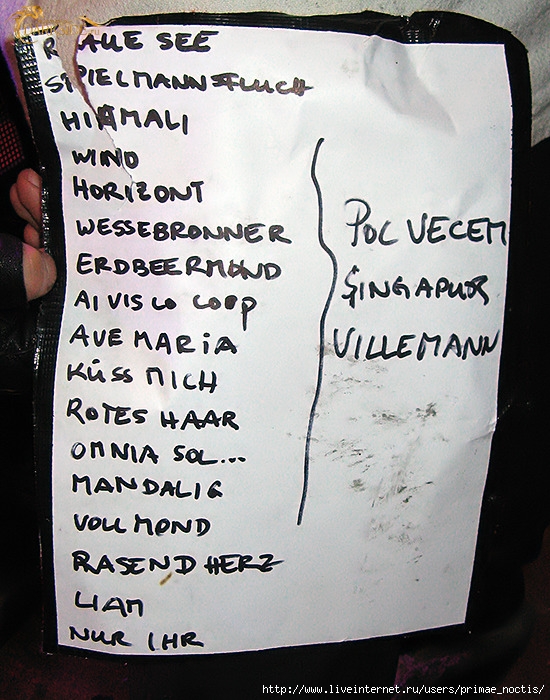 RAUE SEE
SPIELMANNSFLUCH
HIAMALI
WIND
HORIZONT
WESSEBRONNER
ERDBEERMOND
AI VIS LO LOOP
AVE MARIA
KÜSS MICH
ROTES HAAR
OMNIA SOL...
MANDALIG
VOLLMOND
RASEND HERZ
LIAM
NUR IHR
POC VECEM
SINGAPUR
VILLEMANN
http://www.liveinternet.ru/users/primae_noctis/